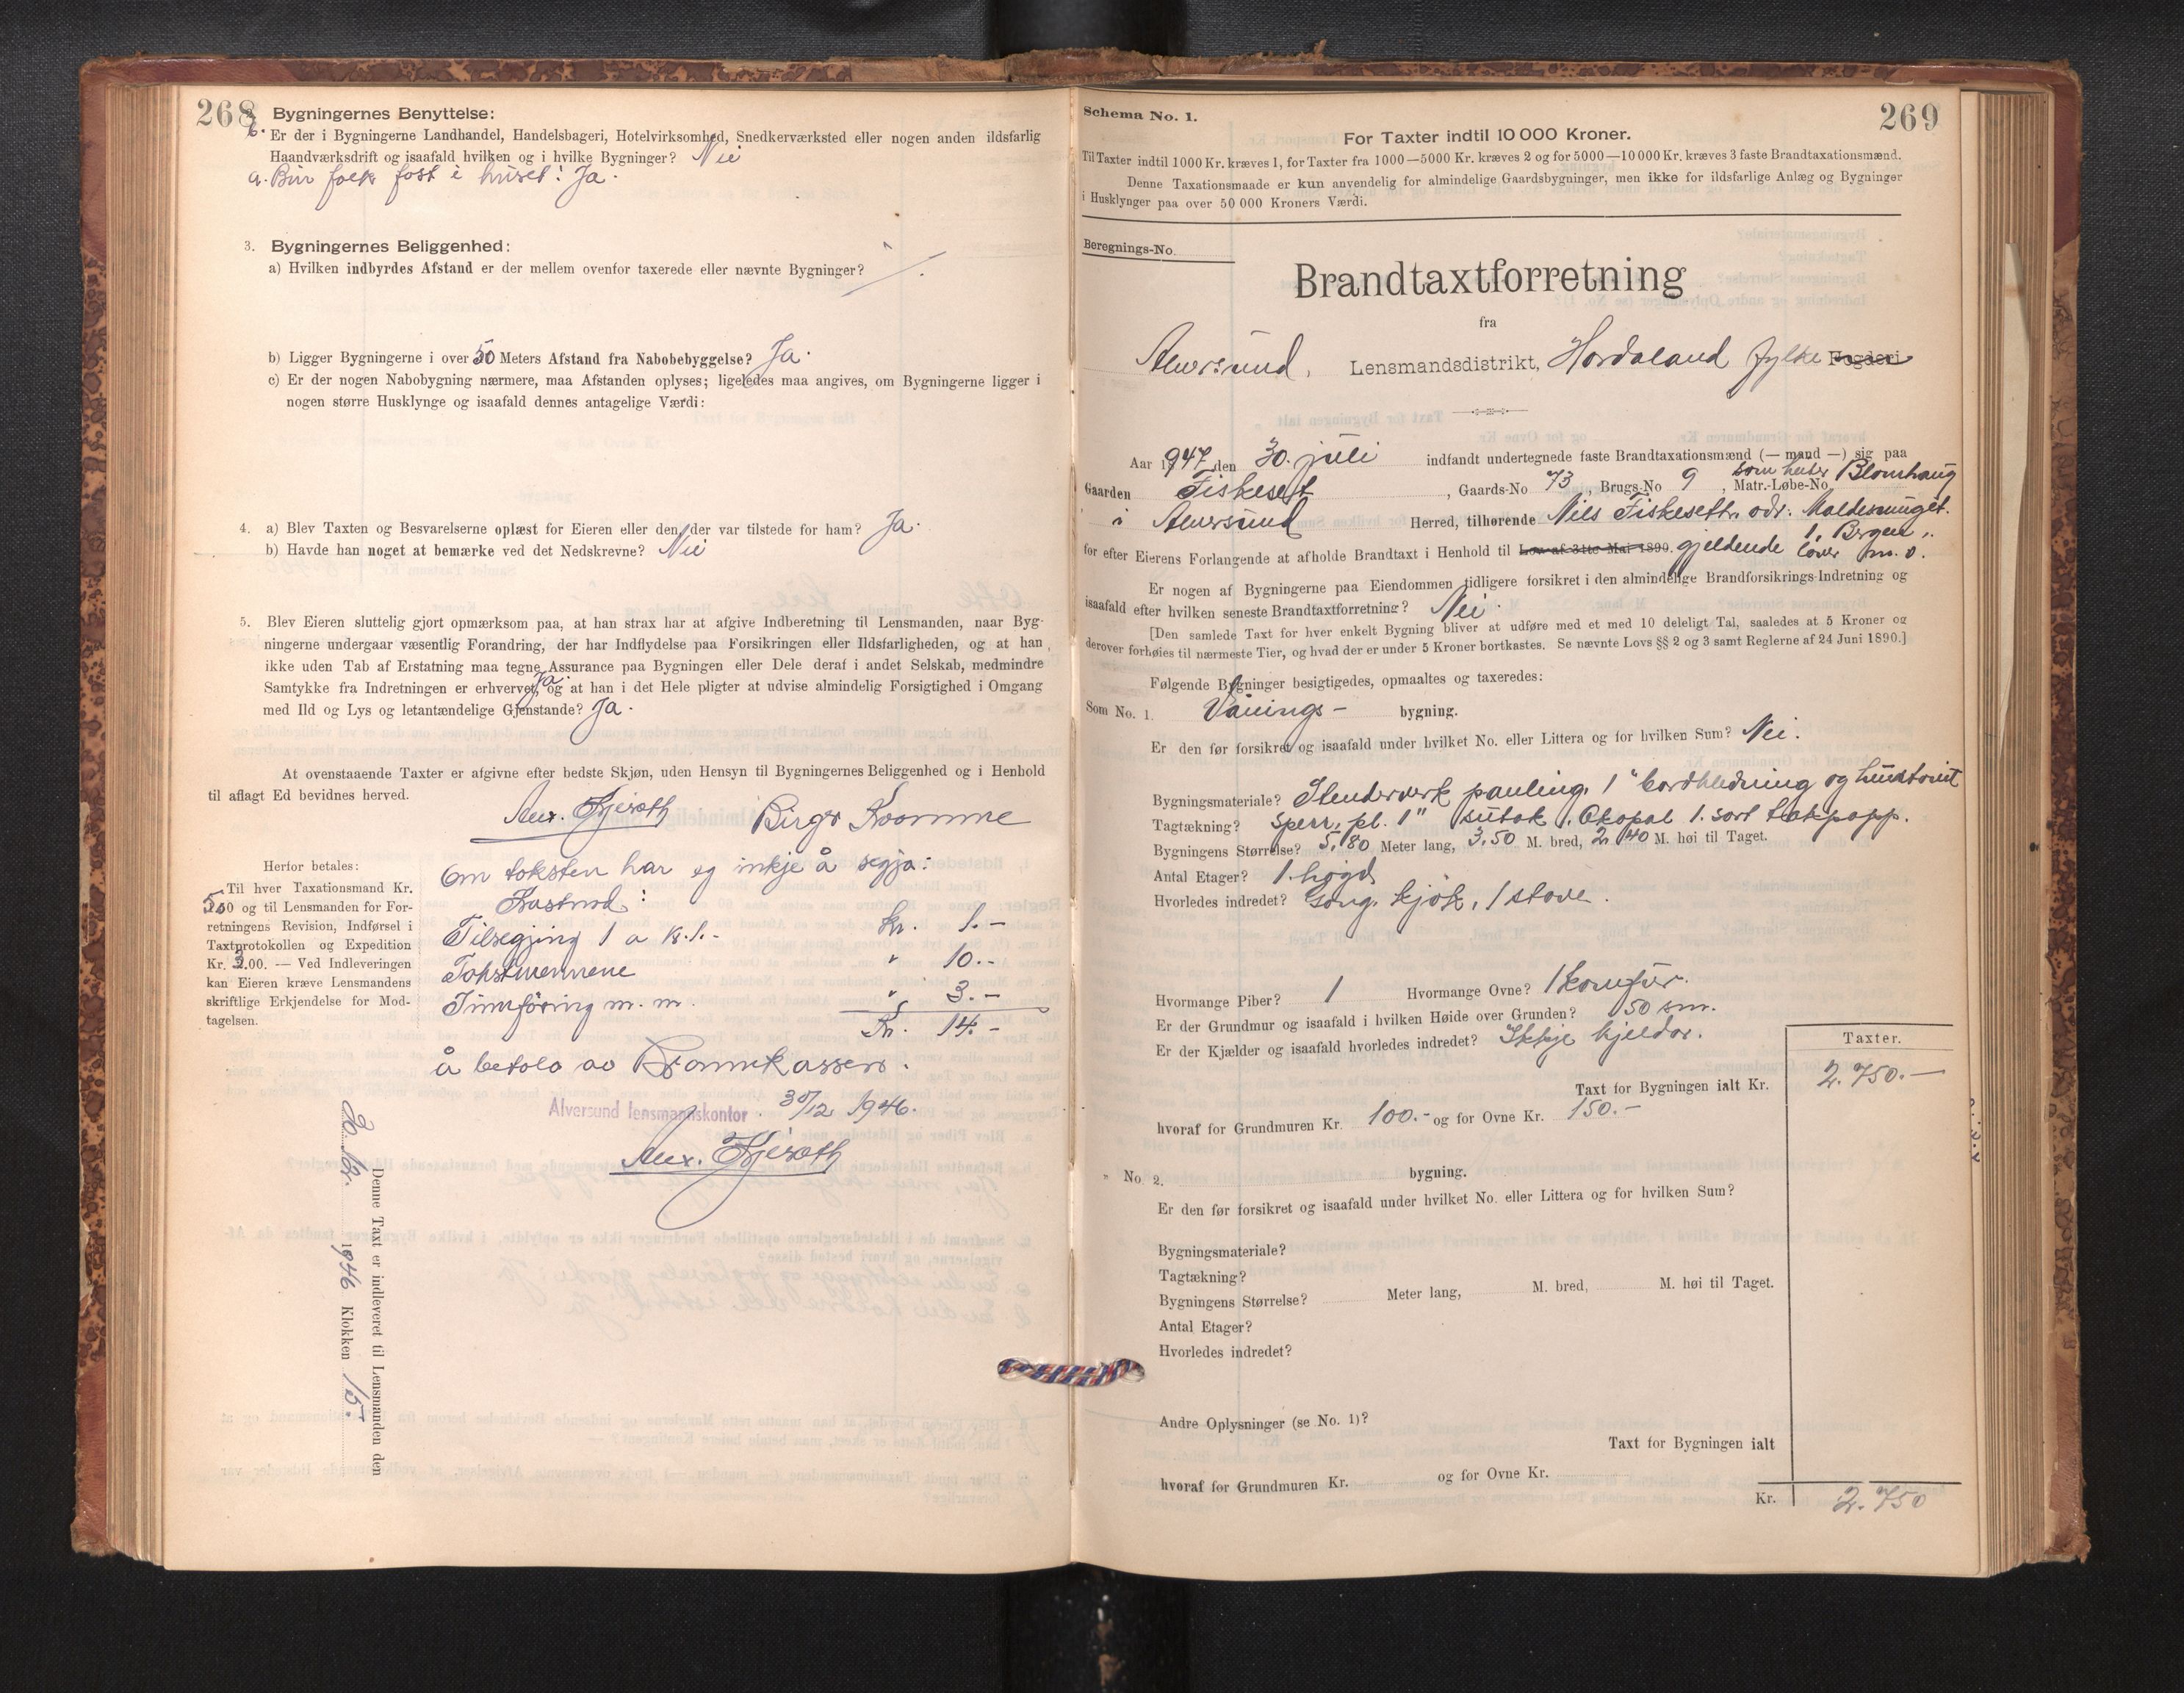 268
Bygningernes Benyttelse:
b. Er der i Bygningerne Landhandel, Handelsbageri, Hotelvirksomhed, Snedkerværksted eller nogen anden ildsfarlig
Haandværksdrift og isaafald hvilken og i hvilke Bygninger? Nei
a. Bur folk fast i huset? Ja.
3. Bygningernes Beliggenhed:
a) Hvilken indbyrdes Afstand er der mellem ovenfor taxerede eller nævnte Bygninger?
b) Ligger Bygningerne i over 50 Meters Afstand fra Nabobebyggelse? Ja.
c) Er der nogen Nabobygning nærmere, maa Afstanden oplyses; ligeledes maa angives, om Bygningerne ligger i
nogen større Husklynge og isaafald dennes antagelige Værdi:
4. a) Blev Taxten og Besvarelserne oplæst for Eieren eller den, der var tilstede for ham? Ja.
b) Havde han noget at bemærke ved det Nedskrevne? Nei
5. Blev Eieren sluttelig gjort opmærksom paa, at han strax har at afgive Indberetning til Lensmanden, naar Byg-
ningerne undergaar væsentlig Forandring, der har Indflydelse paa Forsikringen eller Ildsfarligheden, og at han
ikke uden Tab af Erstatning maa tegne Assurance paa Bygningen eller Dele deraf i andet Selskab, medmindre
Samtykke fra Indretningen er erhvervet, Ja. og at han i det Hele pligter at udvise almindelig Forsigtighed i Omgang
med Ild og Lys og letantændelige Gjenstande? Ja.
At ovenstaaende Taxter er afgivne efter bedste Skjøn, uden Hensyn til Bygningernes Beliggenhed og i Henhold
til aflagt Ed bevidnes herved.
Birger
Herfor betales:
Til hver Taxationsmand Kr.
5.00 og til Lensmanden for For-
retningens Revision, Indførsel i
Taxtprotokollen og Expedition
Kr. 3.00. — Ved Indleveringen
kan Eieren kræve Lensmandens
skriftlige Erkjendelse for Mod-
tagelsen.
Om taksten har eg inkje å segja:
Kostnad:
Tilsegjing 1 a kr. 1.- Kr. 1.-
Takstmennene " 10.-
Innføring m. m. " 3.-
Kr. 14.-
å betala av Brannkassen.
Alversund lensmannskontor. 30/12 1946.
Denne Taxt er indleveret til Lensmanden den
1946 Klokken 15.
269
Schema No. 1.
For Taxter indtil 10 000 Kroner.
Til Taxter indtil 1000 Kr. kræves 1, for Taxter fra 1000—5000 Kr. kræves 2 og for 5000—10 000 Kr. kræves 3 faste Brandtaxationsmænd.
Denne Taxationsmaade er kun anvendelig for almindelige Gaardsbygninger, men ikke for ildsfarlige Anlæg og Bygninger
i Husklynger paa over 50 000 Kroners Værdi.
Beregnings-No.
Brandtaxtforretning
fra
Alversund, Lensmandsdistrikt, Hordaland fylke Fogderi
Aar 1947 den 30. juli indfandt undertegnede faste Brandtaxationsmænd (— mand —) sig paa
Gaarden Fiskeset, Gaards-No 73, Brugs-No 9, Matr.-Løbe-No. som heiter Blomhaug
i Alversund Herred, tilhørende Nils Fiskeseth, adr:
1, Bergen,
for efter Eierens Forlangende at afholde Brandtaxt i Henhold til Lov af 3tte Mai 1890. gjeldende lover m. v.
Er nogen af Bygningerne paa Eiendommen tidligere forsikret i den almindelige Brandforsikrings-Indretning og
isaafald efter hvilken seneste Brandtaxtforretning? Nei.
[Den samlede Taxt for hver enkelt Bygning bliver at udføre med et med 10 deleligt Tal, saaledes at 5 Kroner og
derover forhøies til nærmeste Tier, og hvad der er under 5 Kroner bortkastes. Se nævnte Lovs §§ 2 og 3 samt Reglerne af 24 Juni 1890.]
Følgende Bygninger besigtigedes, opmaaltes og taxeredes:
Som No. 1. Vånings- bygning.
Er den før forsikret og isaafald under hvilket No. eller Littera og for hvilken Sum? Nei.
Bygningsmateriale? Stenderverk pauling, 1" bordkledning og
Tagtækning? sperr, pl. 1" sutak, 1. sort takpapp.
Bygningens Størrelse? 5,80 Meter lang, 3,50 M. bred, 2,40 M. høi til Taget.
Antal Etager? 1. høgd
Hvorledes indredet? Gong, kjøk, 1 stove.
Hvormange Piber? 1 Hvormange Ovne? 1 komfyr.
Er der Grundmur og isaafald i hvilken Høide over Grunden? 50 sm.
Er der Kjælder og isaafald hvorledes indredet? Ikkje kjeldar.
Taxter.
Taxt for Bygningen ialt Kr. 2.750.—
hvoraf for Grundmuren Kr. 100.- og for Ovne Kr. 150.-
" No 2. bygning.
Er den før forsikret og isaafald under hvilket No. eller Littera og for hvilken Sum?
Bygningsmateriale?
Tagtækning?
Bygningens Størrelse? Meter lang, M. bred, M. høi til Taget.
Antal Etager?
Hvorledes indredet?
Andre Oplysninger (se No. 1)?
Taxt for Bygningen ialt
hvoraf for Grundmuren Kr. og for Ovne Kr.
Kr. 2.750